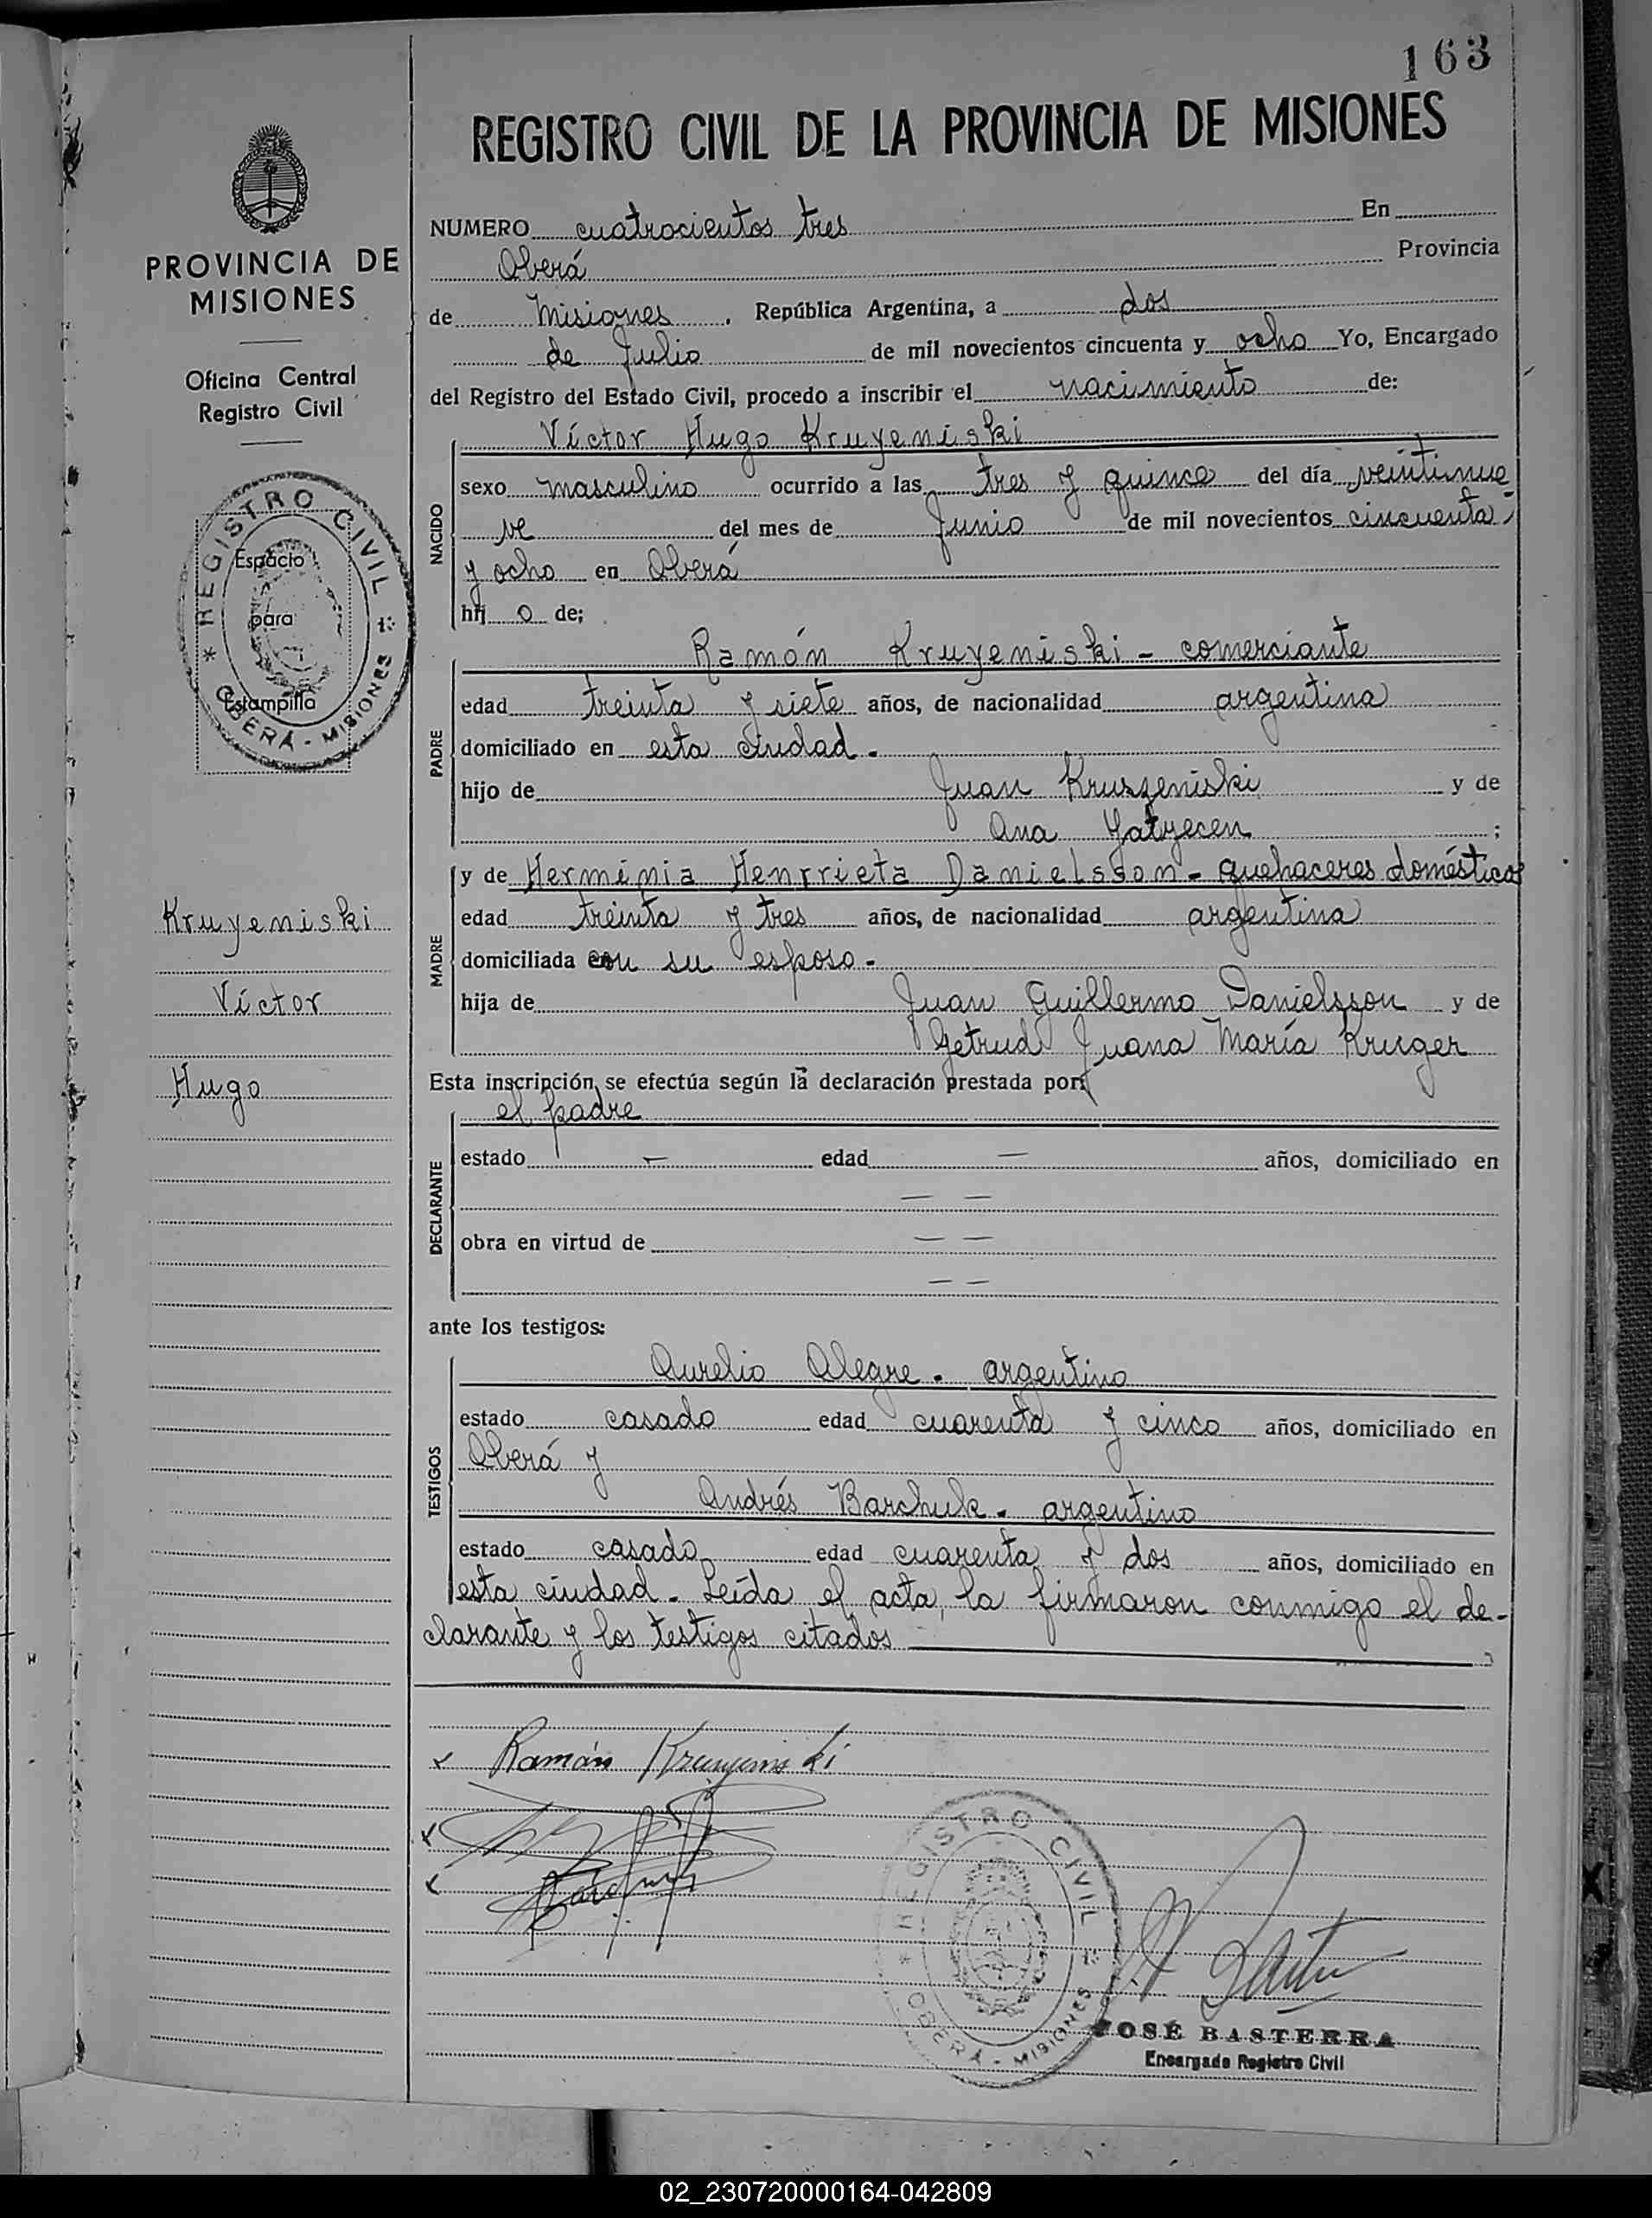 163
REGISTRO CIVIL DE LA PROVINCIA DE MISIONES
PROVINCIA DE
MISIONES
Oficina Central
Registro Civil
REGISTRO CIVIL
OBERÁ - MISIONES
Espacio
para
Estampilla
Kruyeniski
Víctor
Hugo
NUMERO cuatrocientos tres En
Oberá Provincia
de Misiones, República Argentina, a dos
de Julio de mil novecientos cincuenta y ocho Yo, Encargado
del Registro del Estado Civil, procedo a inscribir el nacimiento de:
NACIDO
Víctor Hugo Kruyeniski
sexo masculino ocurrido a las tres y quince del día veintinue-
ve del mes de Junio de mil novecientos cincuenta
y ocho en Oberá
hij o de;
PADRE
Ramón Kruyeniski - comerciante
edad treinta y siete años, de nacionalidad argentina
domiciliado en esta ciudad -
hijo de Juan Kruszeniski y de
Ana Yatyecen ;
MADRE
y de Herminia Henrrieta Danielsson - quehaceres domésticos
edad treinta y tres años, de nacionalidad argentina
domiciliada con su esposo -
hija de Juan Guillermo Danielsson y de
Getrud Juana María Kruger
Esta inscripción se efectúa según la declaración prestada por:
DECLARANTE
el padre
estado — edad — años, domiciliado en
— —
obra en virtud de — —
— —
ante los testigos:
TESTIGOS
Aurelio Alegre - argentino
estado casado edad cuarenta y cinco años, domiciliado en
Oberá y
Andrés Barchuk - argentino
estado casado edad cuarenta y dos años, domiciliado en
esta ciudad - Leída el acta, la firmaron conmigo el de-
clarante y los testigos citados
x Ramón Kruyeniski
x
x
REGISTRO CIVIL
OBERÁ - MISIONES
JOSÉ BASTERRA
Encargado Registro Civil
02_230720000164-042809